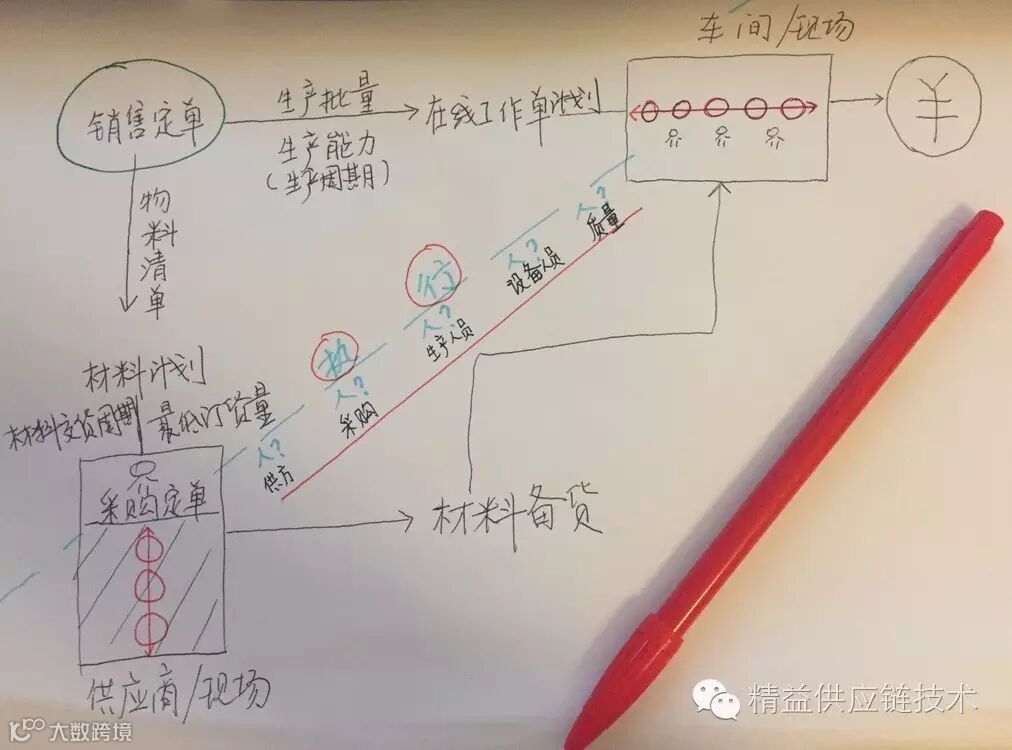 车间/现场
销售定单
生产批量
生产能力
(生产周期)
在线工作单计划
¥
物料清单
人?
质量
人?
设备人员
行
人?
生产人员
执
人?
采购
人?
供方
材料计划
材料交货周期
最低订货量
采购定单
材料备货
供应商/现场
精益供应链技术
100 大数跨境